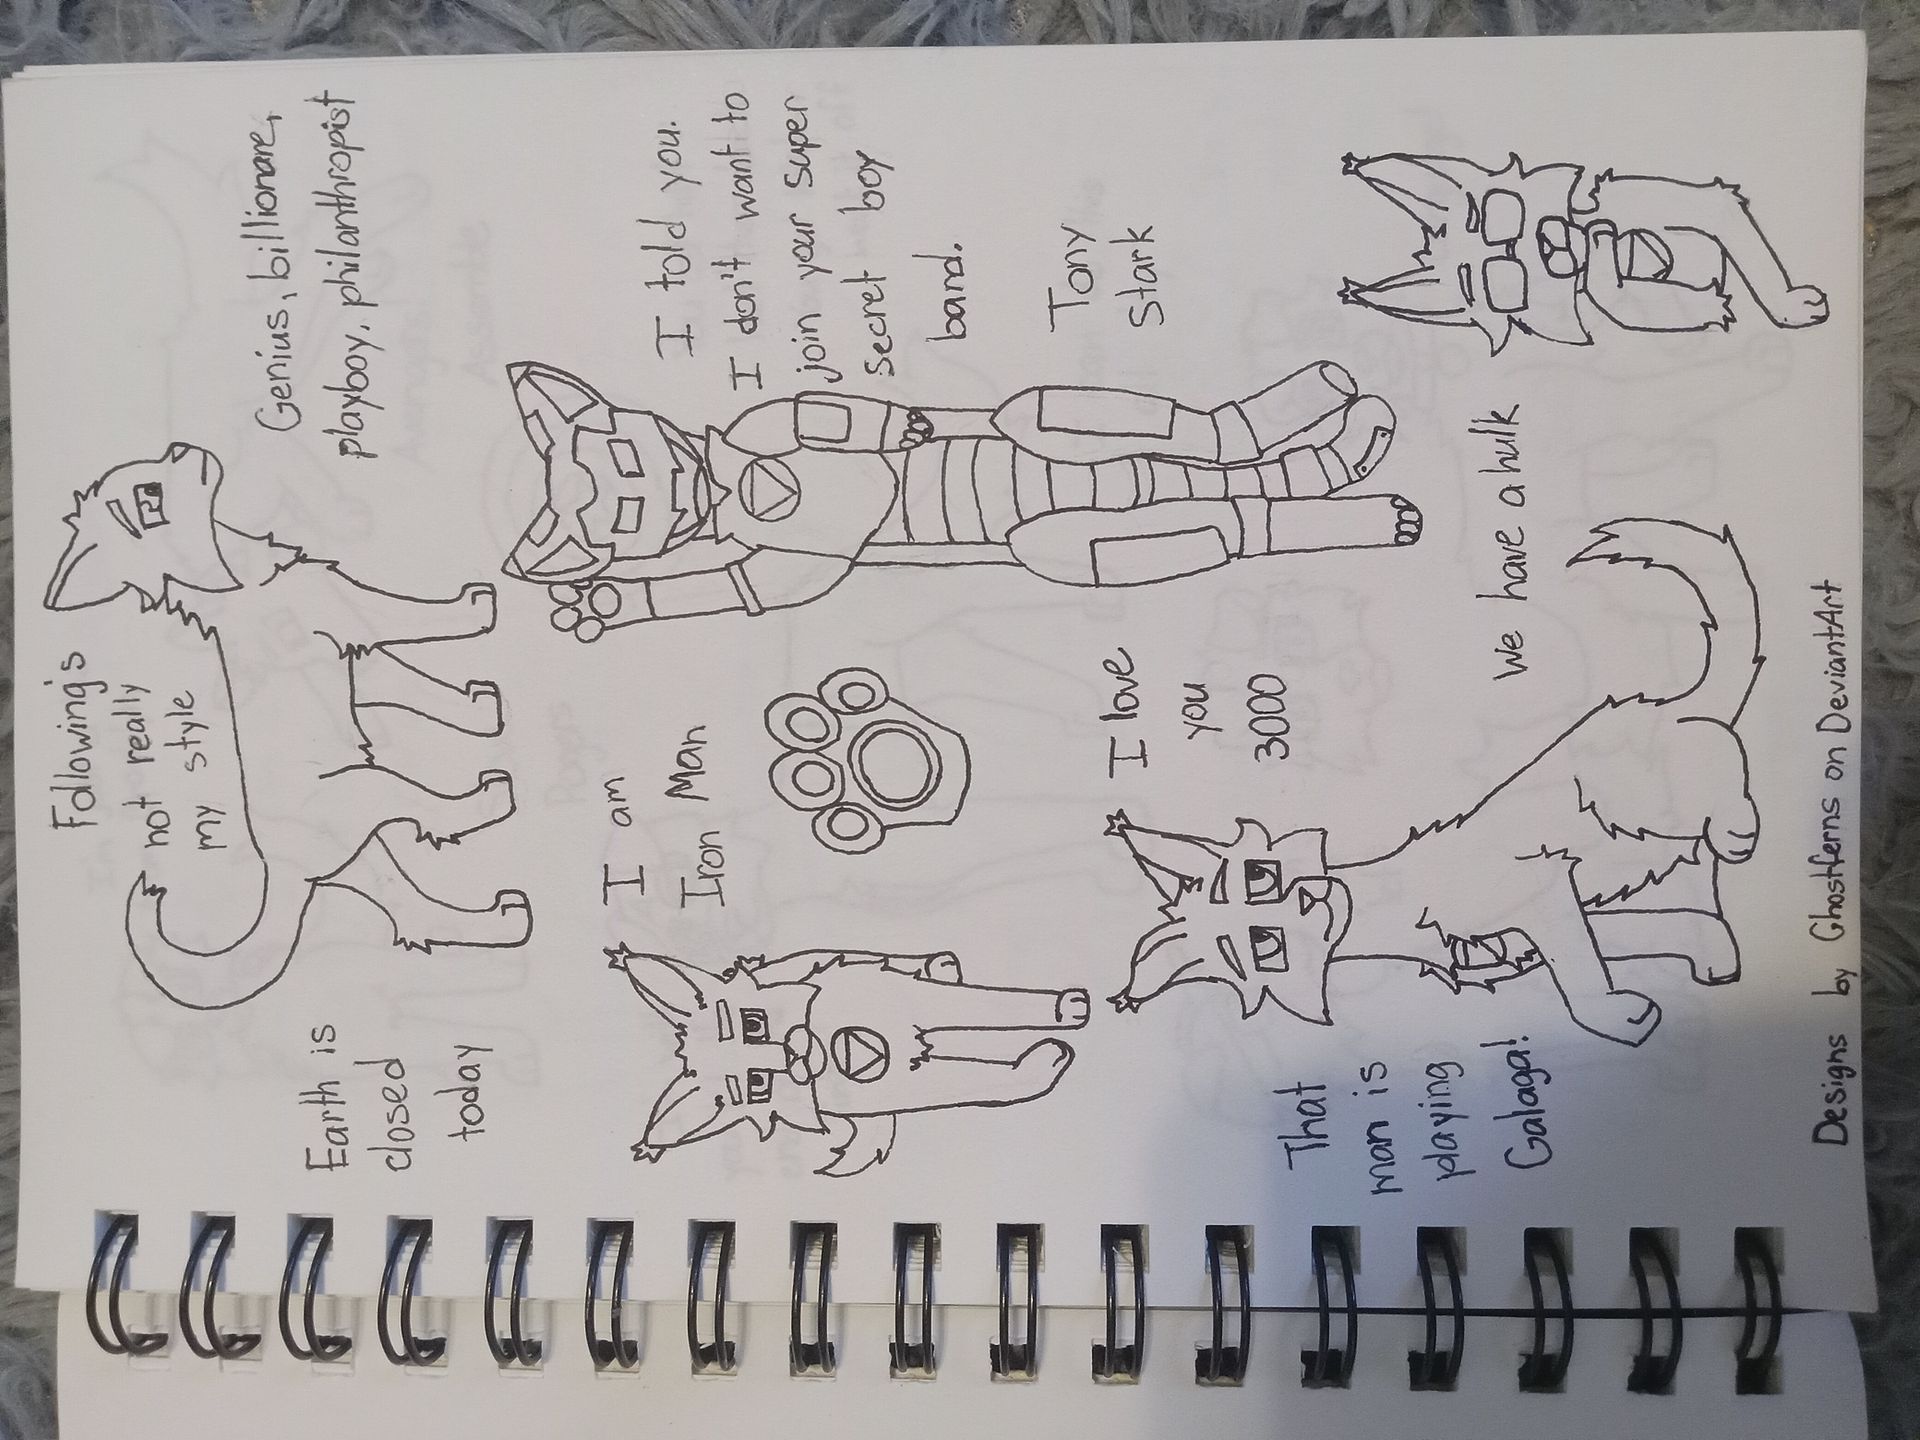 Following's
not really
my style
Genius, billionare,
playboy, philanthropist
Earth is
closed
today
I told you.
I don't want to
join your super
secret boy
band.
I am
Iron Man
Tony
Stark
I love
you
3000
We have a hulk
That
man is
playing
Galaga!
Designs by Ghostferns on DeviantArt